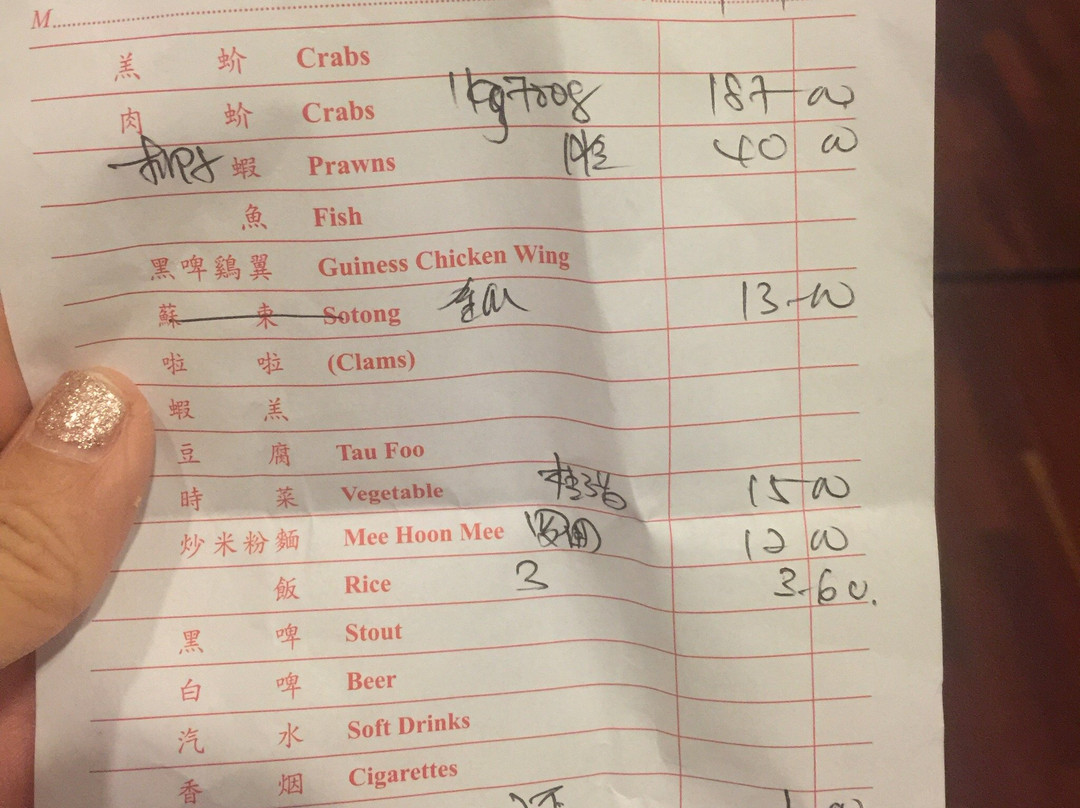 M
羔 蚧 Crabs
肉 蚧 Crabs 1kg700g 187-00
蝦 Prawns 40 00
魚 Fish
黑啤鷄翼 Guiness Chicken Wing
蘇 東 Sotong 13-00
啦 啦 (Clams)
蝦 羔
豆 腐 Tau Foo
時 菜 Vegetable 15-00
炒米粉麵 Mee Hoon Mee 12 00
飯 Rice 3 3-60.
黑 啤 Stout
白 啤 Beer
汽 水 Soft Drinks
香 烟 Cigarettes